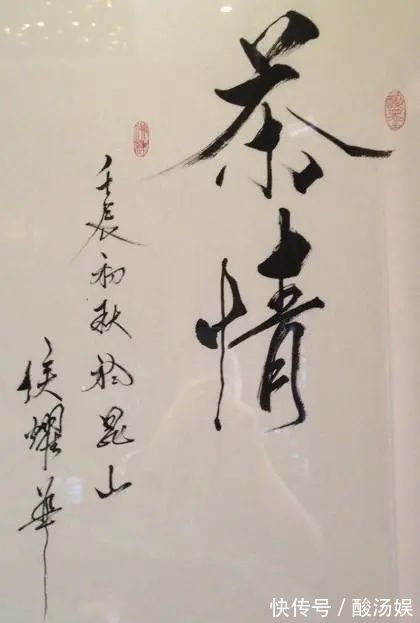 茶情
壬辰初秋於昆山
侯耀華
快传号／酸汤娱